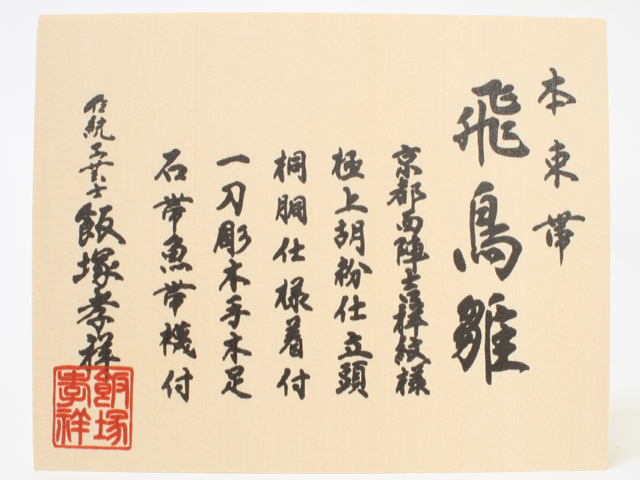 本束帯
飛鳥雛
京都西陣吉祥紋様
極上胡粉仕立頭
桐胴仕様着付
一刀彫木手木足
石帯魚帯機付
伝統工芸士飯塚孝祥
飯塚孝祥